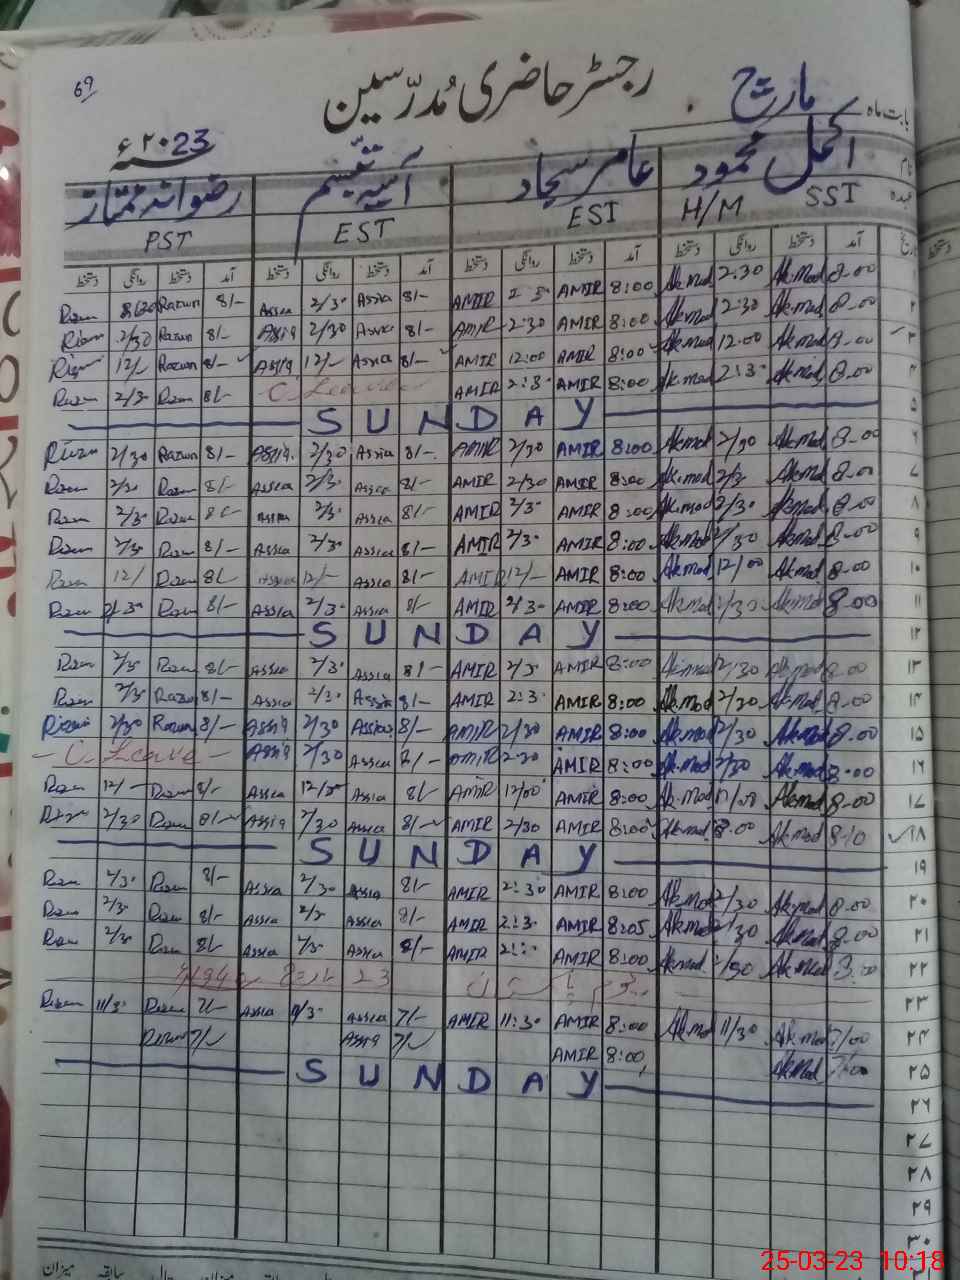 69
رجسٹر حاضری مُدرّسین
بابت ماہ مارچ
۲۰23ء
نام اکمل محمود عامر سجاد آسیہ تبسم رضوانہ ممتاز
عہدہ SST H/M EST EST PST
تاریخ آمد دستخط روانگی دستخط آمد دستخط روانگی دستخط آمد دستخط روانگی دستخط آمد دستخط روانگی دستخط
Assia 2/3 Assia 8/- AMIR AMIR 8:00 Ak.mod 2:30 Ak.mod 8.00
۲ 2/30 Razwn 8/- Assia 2/30 Assia 8/- AMIR 2:30 AMIR 8:00 Ak.mod 2:30 Ak.mod 8.00
۳ 12/- Razwn 8/- Assia 12/- Assia 8/- AMIR 12:00 AMIR 8:00 Ak.mod 12.00 Ak.mod 8.00
۴ 2/3 8/- C. Leave AMIR 2:3 AMIR 8:00 Ak.mod 2:3 Ak.mod 8.00
۵ SUNDAY
۶ 2/30 Razwn 8/- Assia 2/30 Assia 8/- AMIR 2/30 AMIR 8:00 Ak.mod 2/30 Ak.mod 8.00
۷ 2/30 8/- Assia 2/3 Assia 8/- AMIR 2/30 AMIR 8:00 Ak.mod 2/3 Ak.mod 8.00
۸ 2/3 Assia 2/3 Assia 8/- AMIR 2/3 AMIR 8:00 Ak.mod 2/3 Ak.mod 8.00
۹ 2/3 8/- Assia 2/3 Assia 8/- AMIR 2/3 AMIR 8:00 Ak.mod 2/30 Ak.mod 8.00
۱۰ 12/ 8/- Assia 12/- Assia 8/- AMIR 12/- AMIR 8:00 Ak.mod 12/00 Ak.mod 8.00
۱۱ 2/3 8/- Assia 2/3 Assia 8/- AMIR 2/3 AMIR 8:00 Ak.mod 2/30 Ak.mod 8.00
۱۲ SUNDAY
۱۳ 2/3 8/- Assia 2/3 Assia 8/- AMIR 2/3 AMIR 8:00 Ak.mod 2/30 Ak.mod 8.00
۱۴ 2/3 Razwn 8/- Assia 2/3 Assia 8/- AMIR 2:3 AMIR 8:00 Ak.mod 2/30 Ak.mod 8.00
۱۵ 2/30 Razwn 8/- Assia 2/30 Assia 8/- AMIR 2/30 AMIR 8:00 Ak.mod 2/30 Ak.mod 8.00
۱۶ C. Leave Assia 2/30 Assia 8/- AMIR 2:30 AMIR 8:00 Ak.mod 2/30 Ak.mod 8.00
۱۷ 12/- 8/- Assia Assia 8/- AMIR 12/00 AMIR 8:00 Ak.mod Ak.mod 8.00
۱۸ 2/30 8/- Assia 2/30 Assia 8/- AMIR 2/30 AMIR 8:00 Ak.mod Ak.mod 8.10
۱۹ SUNDAY
۲۰ 2/3 8/- Assia 2/30 Assia 8/- AMIR 2:30 AMIR 8:00 Ak.mod 2/30 Ak.mod 8.00
۲۱ 2/3 8/- Assia 2/3 Assia 8/- AMIR 2:3 AMIR 8:05 Ak.mod 2/30 Ak.mod 8.00
۲۲ 2/3 8/- Assia 2/3 Assia 8/- AMIR AMIR 8:00 Ak.mod 2/30 Ak.mod 8.00
۲۳ یوم پاکستان 23 مارچ 1940ء
۲۴ 11/3 7/- Assia 11/3 Assia 7/- AMIR 11:30 AMIR 8:00 Ak.mod 11/30 Ak.mod 7/00
۲۵ 7/- Assia 7/- AMIR 8:00 Ak.mod 7/00
۲۶ SUNDAY
۲۷
۲۸
۲۹
۳۰
۳۱
میزان سابقہ حال میزان
25-03-23 10:18